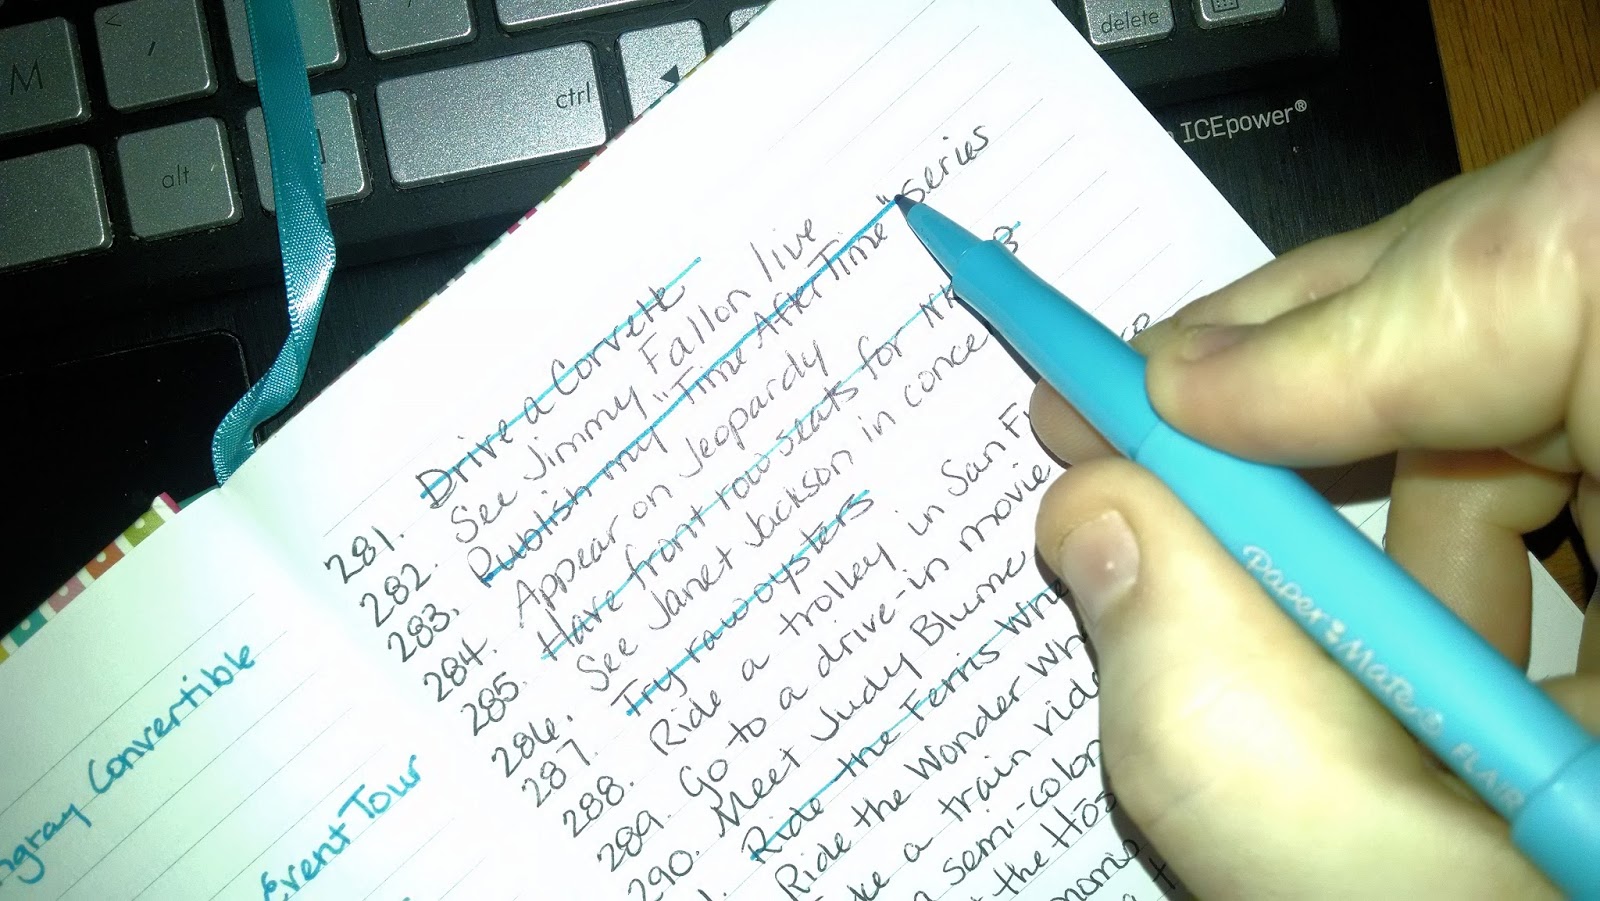 M
<
,
alt
ctrl
delete
ICEpower®
281. Drive a Corvette
282. See Jimmy Fallon live
283. Publish my "Time After Time" series
284. Appear on Jeopardy
285. Have front row seats for
286. See Janet Jackson in
287. Try raw oysters
288. Ride a trolley in San
289. Go to a drive-in movie
290. Meet Judy Blume
Ride the Ferris
Ride the Wonder
a train ride
semi-colon
the
Convertible
Event Tour
Paper Mate® FLAIR